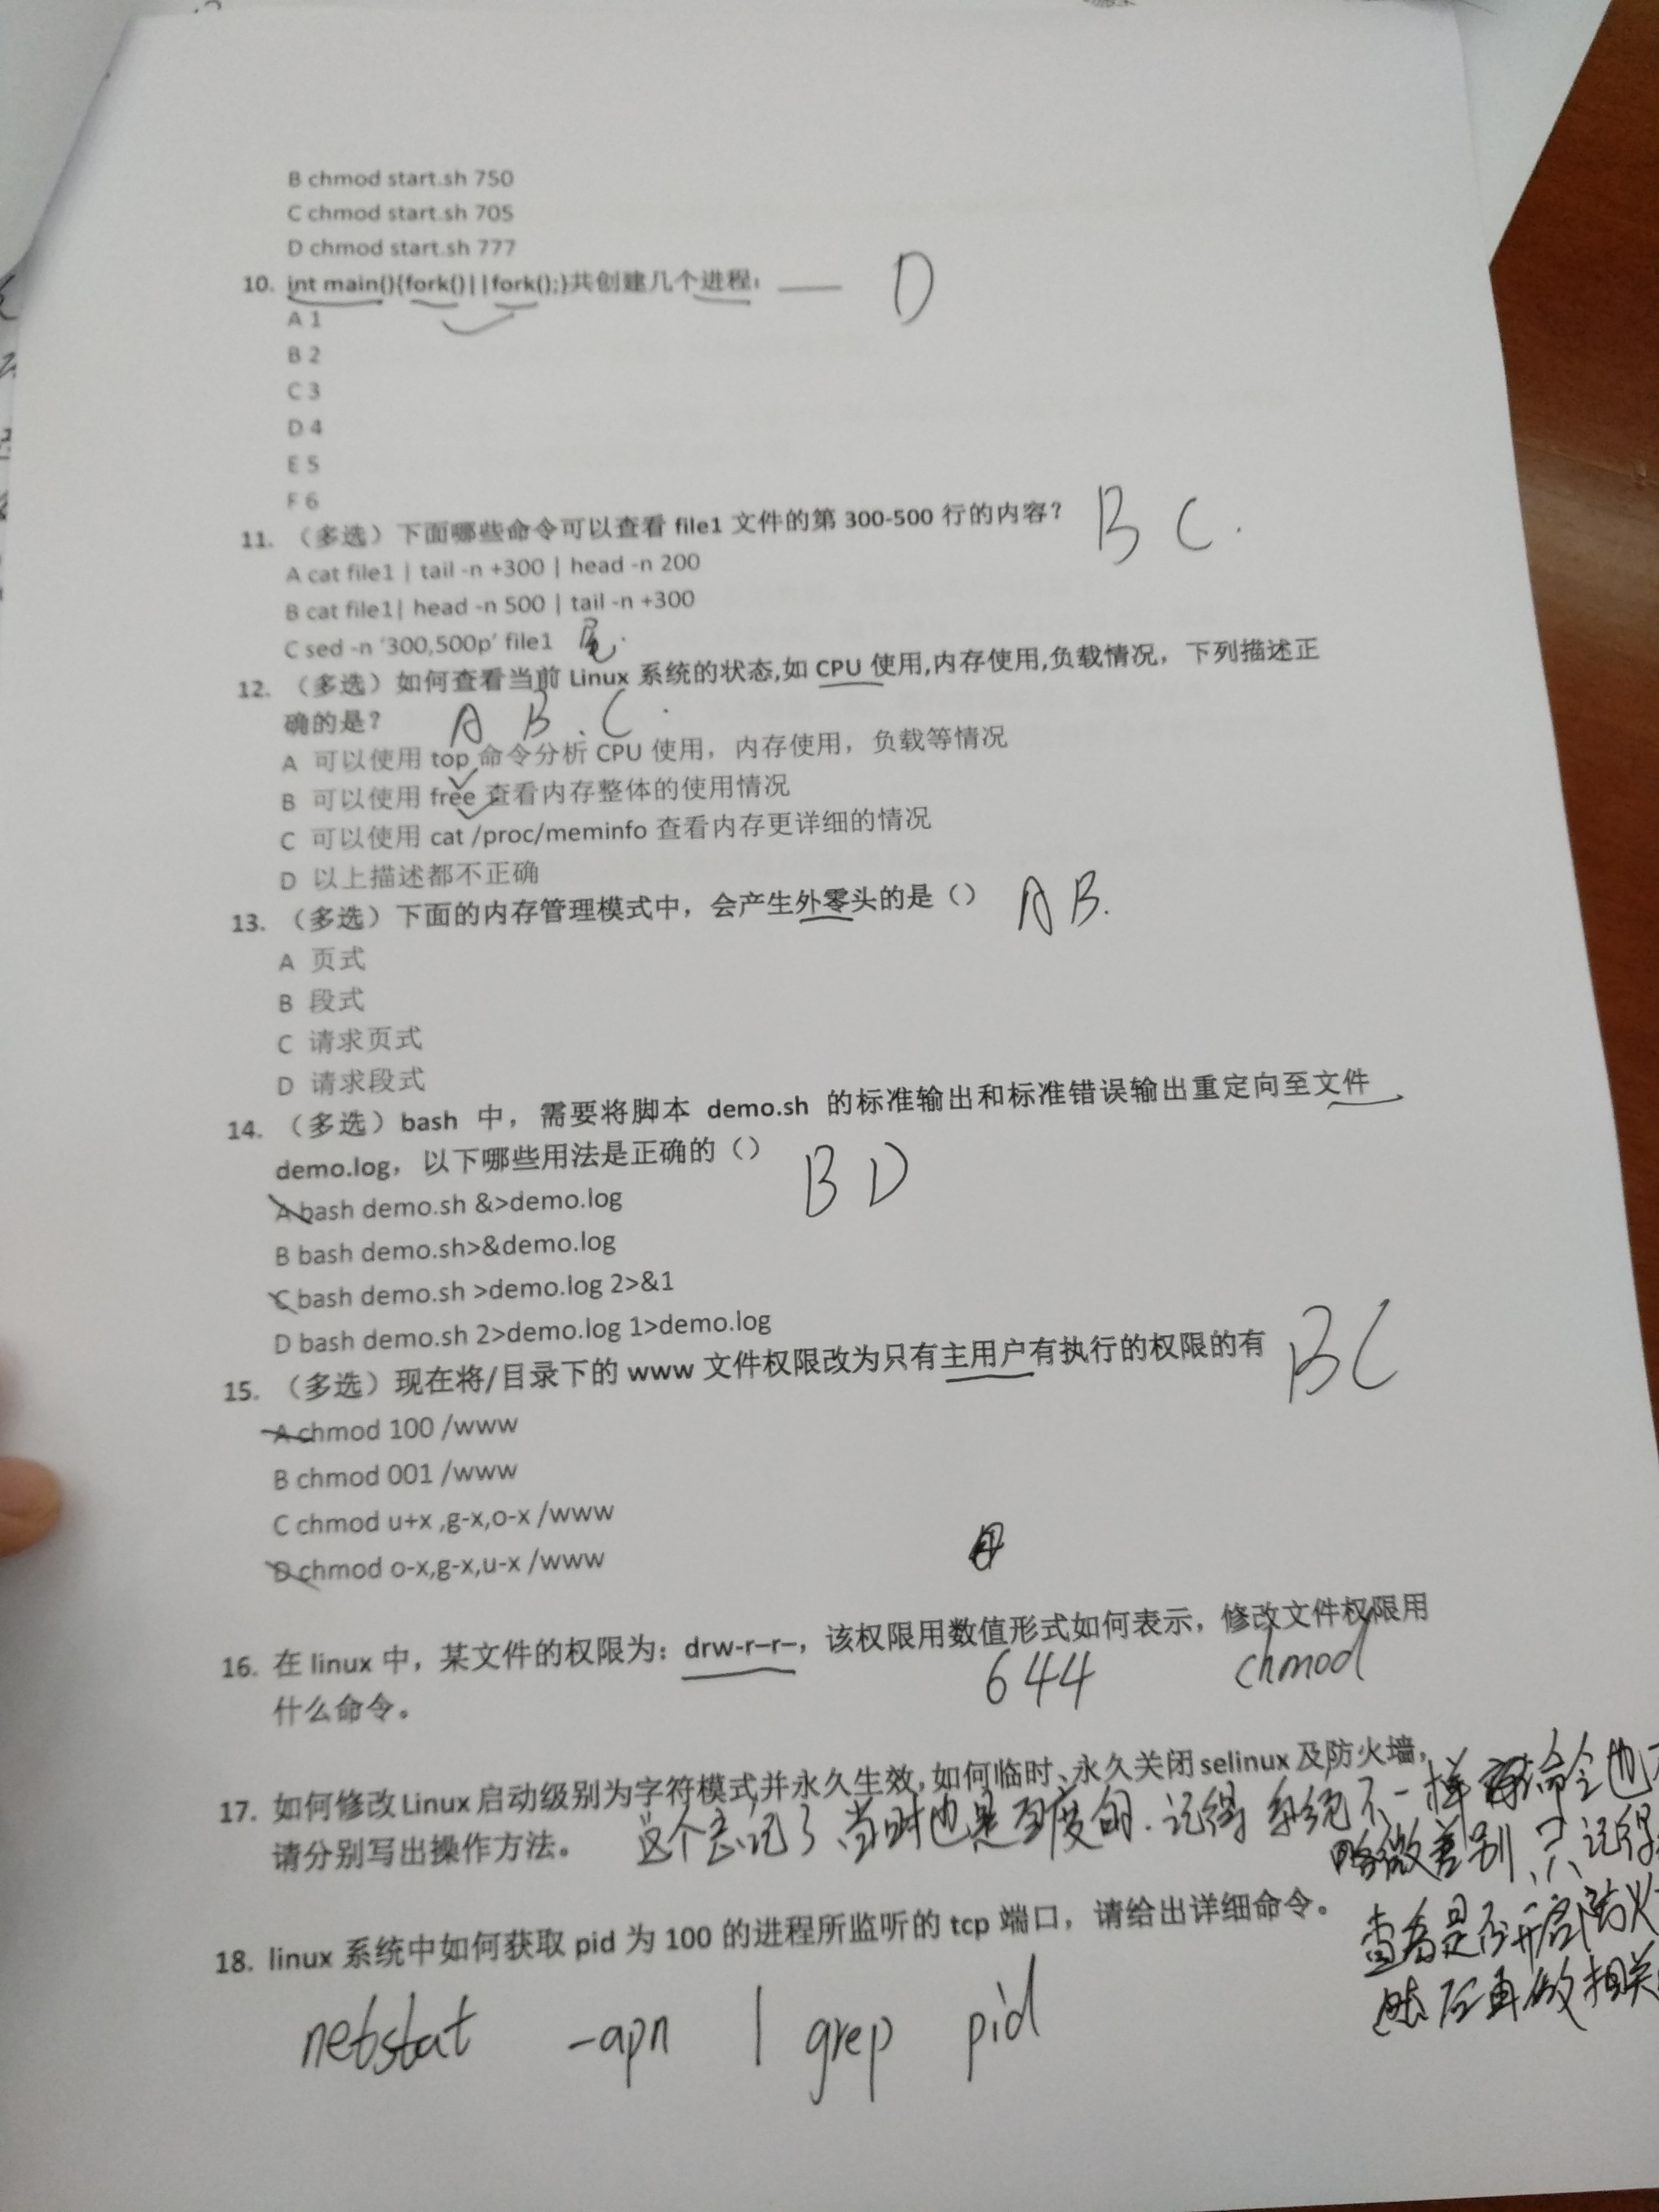 B chmod start.sh 750
C chmod start.sh 705
D chmod start.sh 777
10. int main(){fork()||fork();}共创建几个进程： ____ D
A 1
B 2
C 3
D 4
E 5
F 6
11. （多选）下面哪些命令可以查看 file1 文件的第 300-500 行的内容？ B C.
A cat file1 | tail -n +300 | head -n 200
B cat file1| head -n 500 | tail -n +300
C sed -n '300,500p' file1 尾.
12. （多选）如何查看当前 Linux 系统的状态,如 CPU 使用,内存使用,负载情况，下列描述正
确的是？ A B.C.
A 可以使用 top 命令分析 CPU 使用，内存使用，负载等情况
B 可以使用 free 查看内存整体的使用情况
C 可以使用 cat /proc/meminfo 查看内存更详细的情况
D 以上描述都不正确
13. （多选）下面的内存管理模式中，会产生外零头的是（） A B.
A 页式
B 段式
C 请求页式
D 请求段式
14. （多选）bash 中，需要将脚本 demo.sh 的标准输出和标准错误输出重定向至文件
demo.log，以下哪些用法是正确的（） B D
A bash demo.sh &>demo.log
B bash demo.sh>&demo.log
C bash demo.sh >demo.log 2>&1
D bash demo.sh 2>demo.log 1>demo.log
15. （多选）现在将/目录下的 www 文件权限改为只有主用户有执行的权限的有 BC
A chmod 100 /www
B chmod 001 /www
C chmod u+x ,g-x,o-x /www
D chmod o-x,g-x,u-x /www
16. 在 linux 中，某文件的权限为：drw-r–r–，该权限用数值形式如何表示，修改文件权限用
什么命令。 644 chmod
17. 如何修改 Linux 启动级别为字符模式并永久生效,如何临时、永久关闭 selinux 及防火墙，
请分别写出操作方法。 这个忘记了 当时也是百度的. 记得 系统不一样 命令也
略微差别，只记得
查看是否开启防火
然后再做相关
18. linux 系统中如何获取 pid 为 100 的进程所监听的 tcp 端口，请给出详细命令。
netstat -apn | grep pid